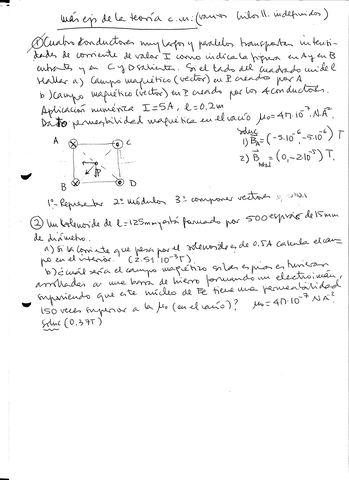 más ej. de la teoría c.m. (varios hilos II. indefinidos)
① Cuatro conductores muy largos y paralelos transportan intensi-
dades de corriente de valor I como indica la figura en A y en B
entrantes y en C y D salientes. Si el lado del cuadrado mide l
Hallar a) Campo magnético (vector) en P creado por A
b) campo magnético (vector) en P creado por los 4 conductores.
Aplicación numérica I = 5A, l = 0,2m
Dato permeabilidad magnética en el vacío μ₀ = 4π·10⁻⁷ N·A⁻²
soluc
1) B⃗A = (-5·10⁻⁶, -5·10⁻⁶) T
2) B⃗total = (0, -2·10⁻⁵) T.
A
C
P
B
D
1º Representar 2º módulos 3º componer vectores
② Un solenoide de l = 125mm está formado por 500 espiras de 15mm
de diámetro.
a) Si la corriente que pasa por el solenoide es de 0.5A calcula el cam-
po en el interior. (2.51·10⁻³T)
b) ¿cuál sería el campo magnético si las espiras estuvieran
arrolladas a una barra de hierro formando un electroimán,
suponiendo que este núcleo de Fe tiene una permeabilidad
150 veces superior a la μ₀ (en el vacío)? μ₀ = 4π·10⁻⁷ N A⁻²
Soluc (0.37T)